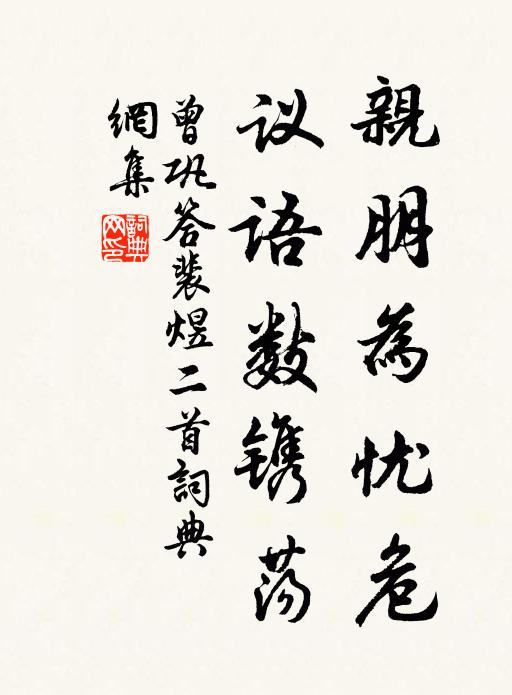 親朋為忧危
议语数镌荡
曾巩答裴煜二首詞典
網集
詞典
网印